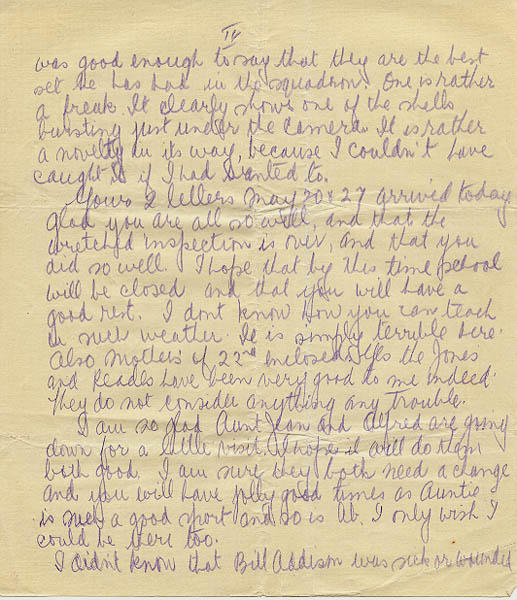 IV
was good enough to say that they are the best
set he has had in the squadron. One is rather
a freak. It clearly shows one of the shells
bursting just under the camera. It is rather
a novelty in its way, because I couldn't have
caught it if I had wanted to.
Yours 2 letters May 20 & 27 arrived today
glad you are all so well, and that the
wretched inspection is over, and that you
did so well. I hope that by this time school
will be closed and that you will have a
good rest. I dont know how you can teach
in such weather. It is simply terrible here.
Also Mothers of 22nd enclosed. Yes the Jones
and Reades have been very good to me indeed.
They do not consider anything any trouble.
I am so glad Aunt Jean and Alfred are going
down for a little visit. I hope it will do them
both good. I am sure they both need a change
and you will have jolly good times as Auntie
is such a good sport and so is Ab. I only wish I
could be there too.
I didn't know that Bill Addison was sick or wounded